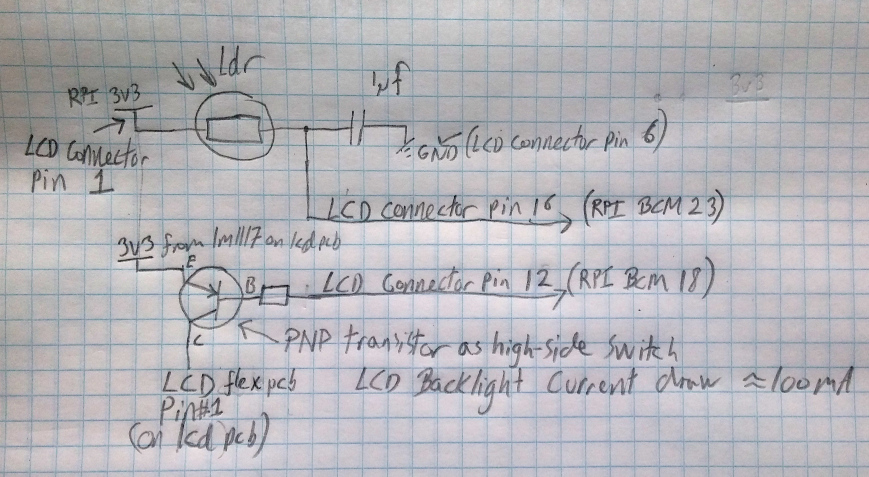 Ldr
1µf
RPI 3v3
3v3
LCD Connector
Pin 1
GND (LCD connector pin 6)
LCD connector pin 16 (RPI BCM 23)
3v3 from lm1117 on lcd pcb
E
B
LCD Connector pin 12 (RPI BCM 18)
C
PNP transistor as high-side switch
LCD flex pcb
Pin#1
(on lcd pcb)
LCD Backlight Current draw ≈100mA